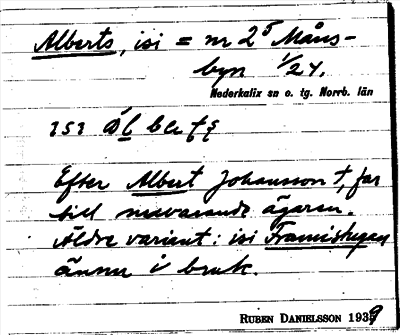 Alberts, isi = nr 2⁵ Måns-
byn 1/24.
Nederkalix sn o. tg. Norrb. län
Efter Albert Johansson †, far
till nuvarande ägaren.
Äldre variant: isi
ännu i bruk.
RUBEN DANIELSSON 1939